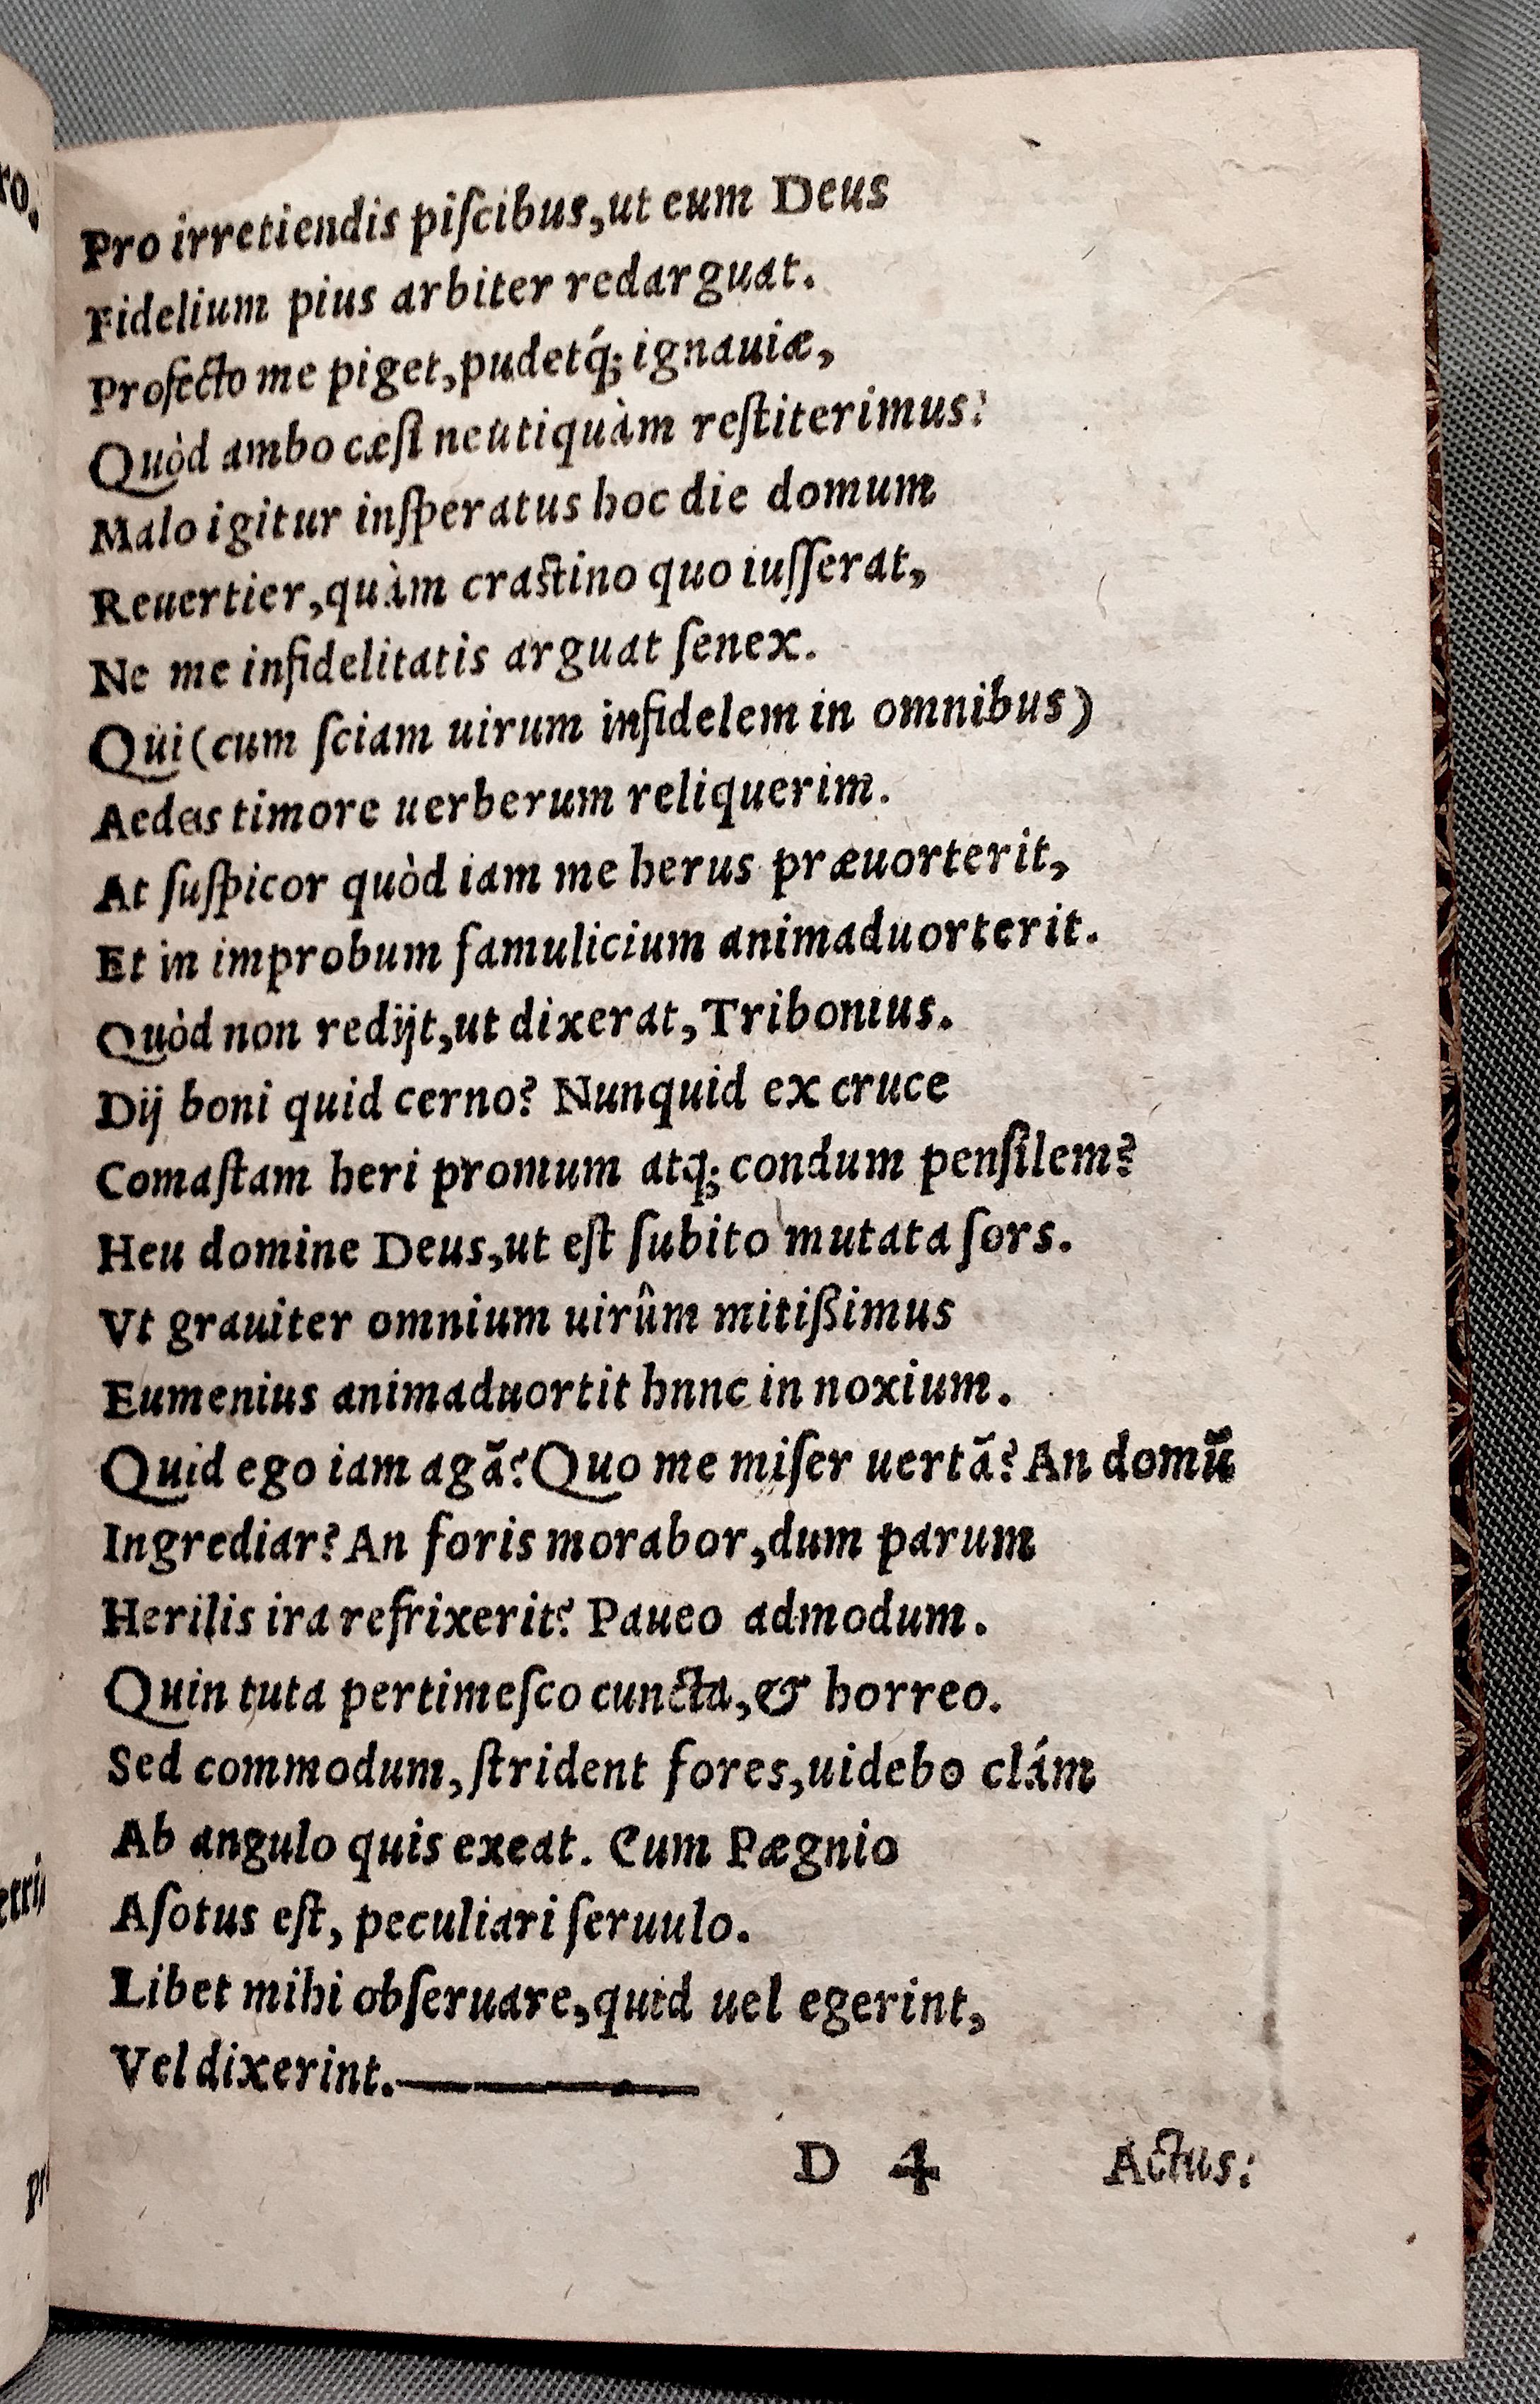 Pro irretiendis piſcibus, ut eum Deus
Fidelium pius arbiter redarguat.
Profecto me piget, pudetq́; ignauiæ,
Quòd ambo cæſi neutiquàm reſtiterimus:
Malo igitur inſperatus hoc die domum
Reuertier, quàm craſtino quo iuſſerat,
Ne me infidelitatis arguat ſenex.
Qui (cum ſciam uirum infidelem in omnibus)
Aedes timore uerberum reliquerim.
At ſuſpicor quòd iam me herus præuorterit,
Et in improbum famulicium animaduorterit.
Quòd non redijt, ut dixerat, Tribonius.
Dij boni quid cerno? Nunquid ex cruce
Comaſtam heri promum atq; condum penſilem?
Heu domine Deus, ut eſt ſubito mutata ſors.
Vt grauiter omnium uirûm mitißimus
Eumenius animaduortit hnnc in noxium.
Quid ego iam agã? Quo me miſer uertã? An domũ
Ingrediar? An foris morabor, dum parum
Herilis ira refrixerit? Paueo admodum.
Quin tuta pertimeſco cuncta, & horreo.
Sed commodum, ſtrident fores, uidebo clám
Ab angulo quis exeat. Cum Pægnio
Aſotus eſt, peculiari ſeruulo.
Libet mihi obſeruare, quid uel egerint,
Vel dixerint.
D 4 Actus: